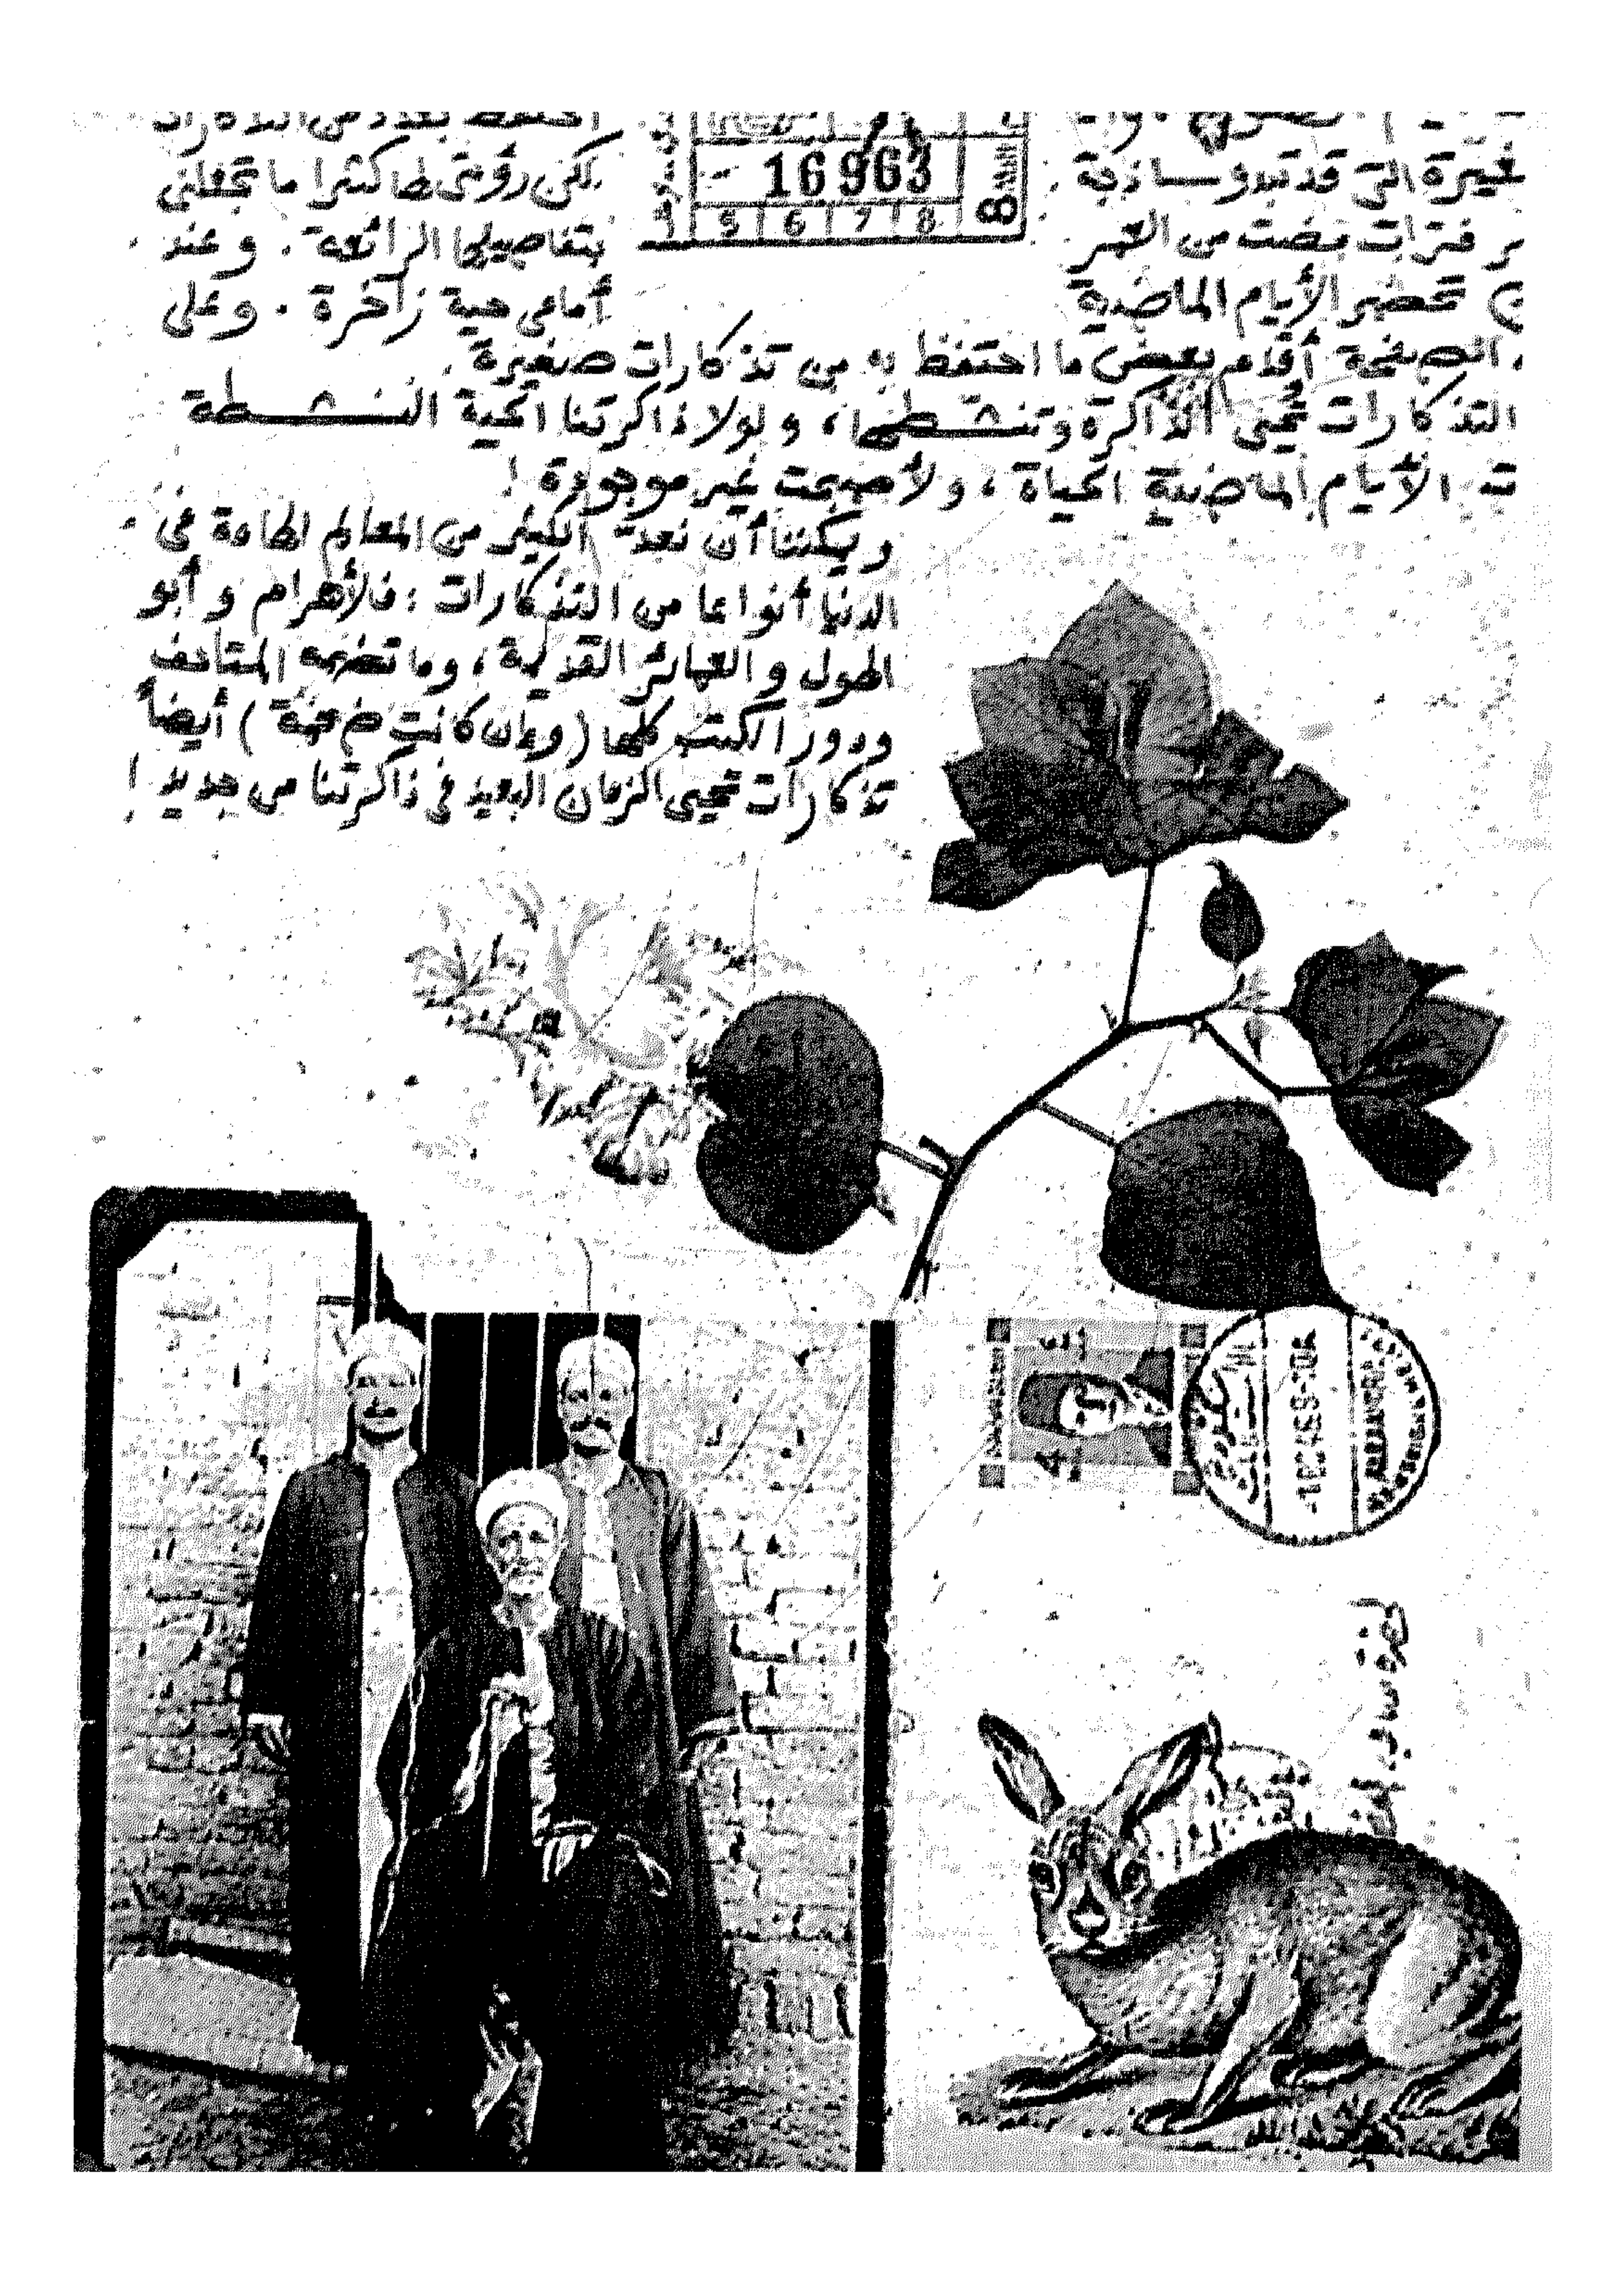 16963
5 6 7 8
8
التي قد تبدو ساذجة
لكن رؤيتي لها كثيرا ما تجعلني
فترات مضت من العمر
بتفاصيلها الرائعة . وعند
تحضر الأيام الماضية
أمامي حية زاخرة . وعلى
الصفحة أقدم بعض ما احتفظ به من تذكارات صغيرة .
التذكارات تحيي الذاكرة وتنشطها ، ولولا ذاكرتنا الحية النشطة
الأيام الماضية الحياة ، ولأصبحت غير موجودة !
ويمكننا أن نعد الكثير من المعالم الهامة في
الدنيا أنواعا من التذكارات : فالأهرام و أبو
الهول و العمائر القديمة ، وما تضمه المتاحف
ودور الكتب كلها ( وإن كانت ضخمة ) أيضاً
تذكارات تحيي الزمان البعيد في ذاكرتنا من جديد !
4